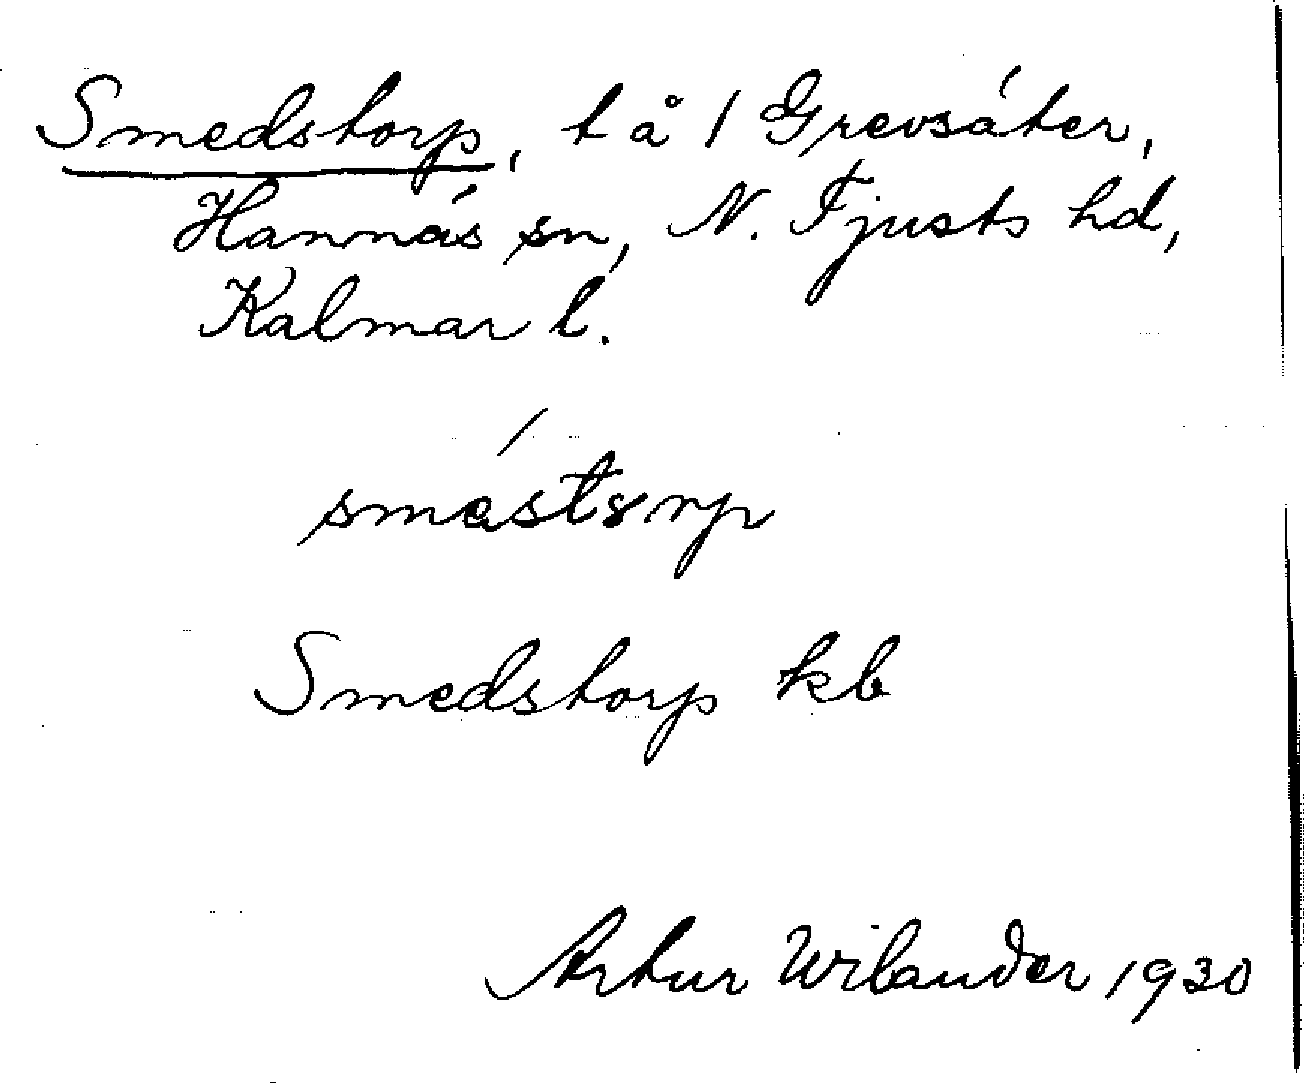 Smedstorp, t å 1 Grevsáter,
Hannás sn, N. Tjusts hd,
Kalmar l.
Smedstorp kb
Artur Wilander 1930